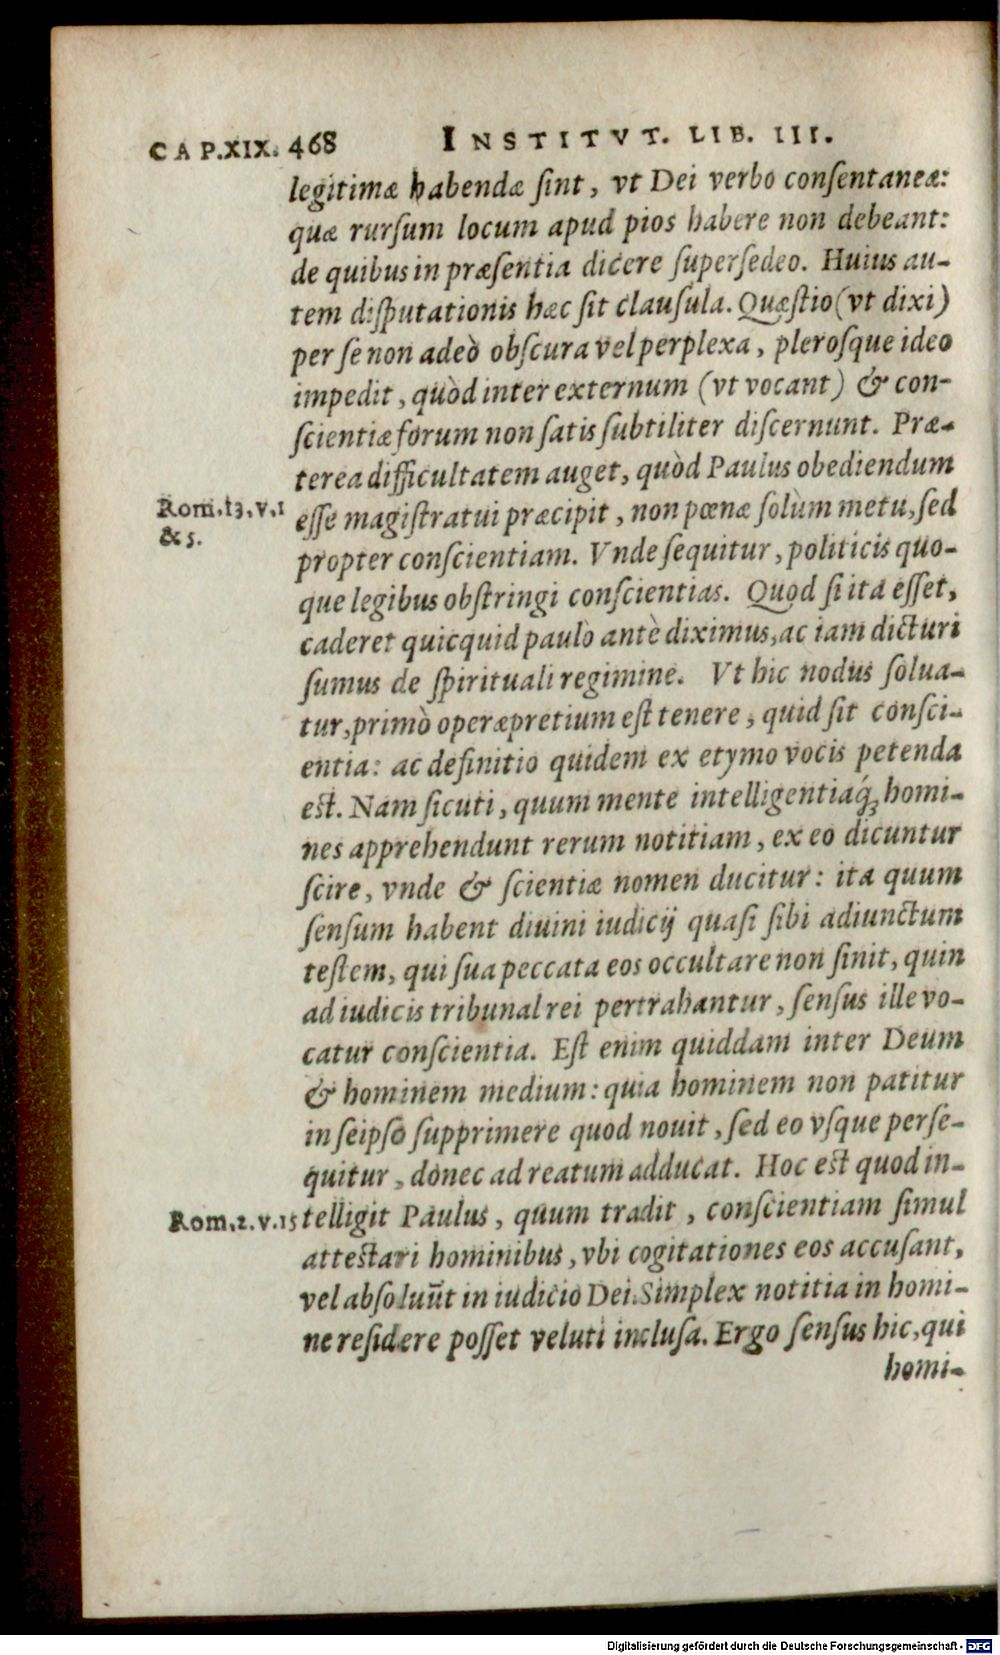 CAP.XIX. 468 INSTITVT. LIB. III.
legitimæ habendæ ſint, vt Dei verbo conſentaneæ:
quæ rurſum locum apud pios habere non debeant:
de quibus in præſentia dicere ſuperſedeo. Huius au-
tem diſputationis hæc ſit clauſula. Quæſtio (vt dixi)
per ſe non adeò obſcura vel perplexa, pleroſque ideo
impedit, quòd inter externum (vt vocant) & con-
ſcientiæ forum non ſatis ſubtiliter diſcernunt. Præ-
terea difficultatem auget, quòd Paulus obediendum
Rom.13.v.1
eſſe magiſtratui præcipit, non pœnæ ſolùm metu, ſed
& 5.
propter conſcientiam. Vnde ſequitur, politicis quo-
que legibus obſtringi conſcientias. Quod ſi ita eſſet,
caderet quicquid paulò antè diximus, ac iam dicturi
ſumus de ſpirituali regimine. Vt hic nodus ſolua-
tur, primò operæpretium eſt tenere, quid ſit conſci-
entia: ac definitio quidem ex etymo vocis petenda
est. Nam ſicuti, quum mente intelligentiaq́; homi-
nes apprehendunt rerum notitiam, ex eo dicuntur
ſcire, vnde & ſcientiæ nomen ducitur: ita quum
ſenſum habent diuini iudicij quaſi ſibi adiunctum
teſtem, qui ſua peccata eos occultare non ſinit, quin
ad iudicis tribunal rei pertrahantur, ſenſus ille vo-
catur conſcientia. Eſt enim quiddam inter Deum
& hominem medium: quia hominem non patitur
in ſeipſo ſupprimere quod nouit, ſed eo vſque perſe-
quitur, donec ad reatum adducat. Hoc est quod in-
Rom.2.v.15 telligit Paulus, quum tradit, conſcientiam ſimul
attestari hominibus, vbi cogitationes eos accuſant,
vel abſoluūt in iudicio Dei. Simplex notitia in homi-
ne reſidere poſſet veluti incluſa. Ergo ſenſus hic, qui
homi-
Digitalisierung gefördert durch die Deutsche Forschungsgemeinschaft - DFG